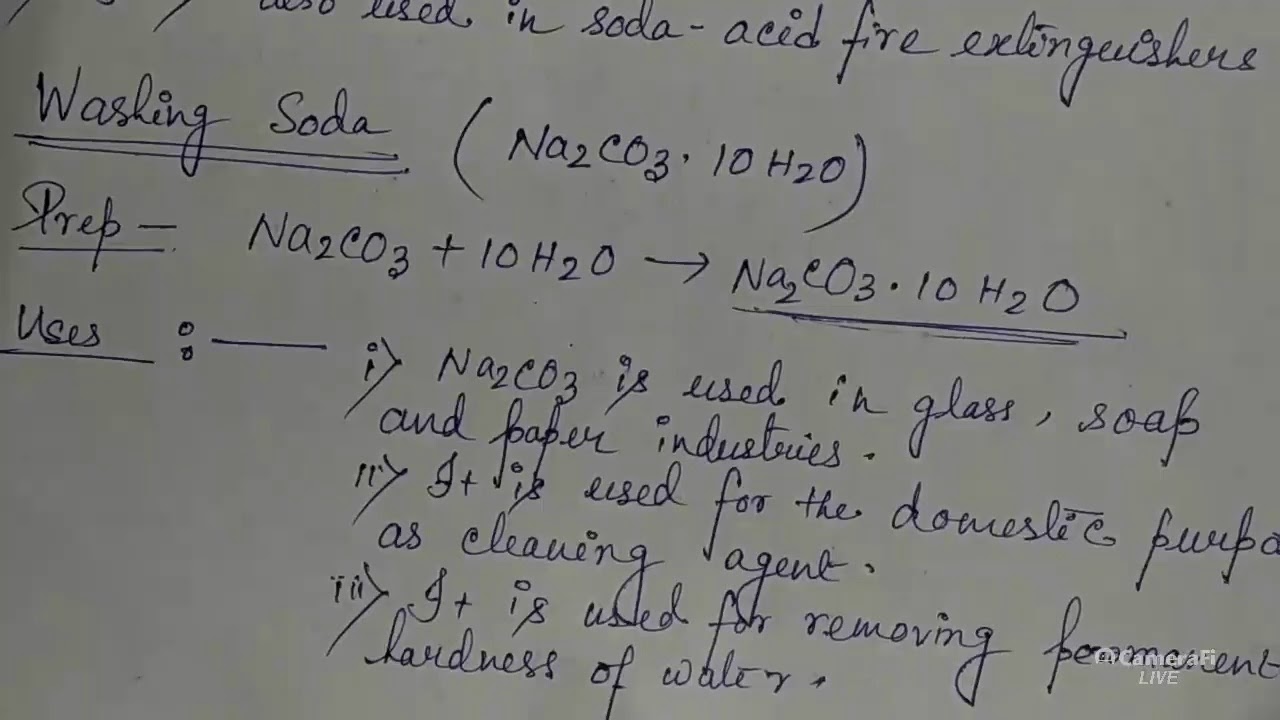 also used in soda-acid fire extinguishers
Washing Soda (Na2CO3. 10 H2O)
Prep - Na2CO3 + 10 H2O → Na2CO3 · 10 H2O
Uses : —
i) Na2CO3 is used in glass, soap
and paper industries.
ii) It is used for the domestic purpo
as cleaning agent.
iii) It is used for removing permanent
hardness of water.
CameraFi
LIVE